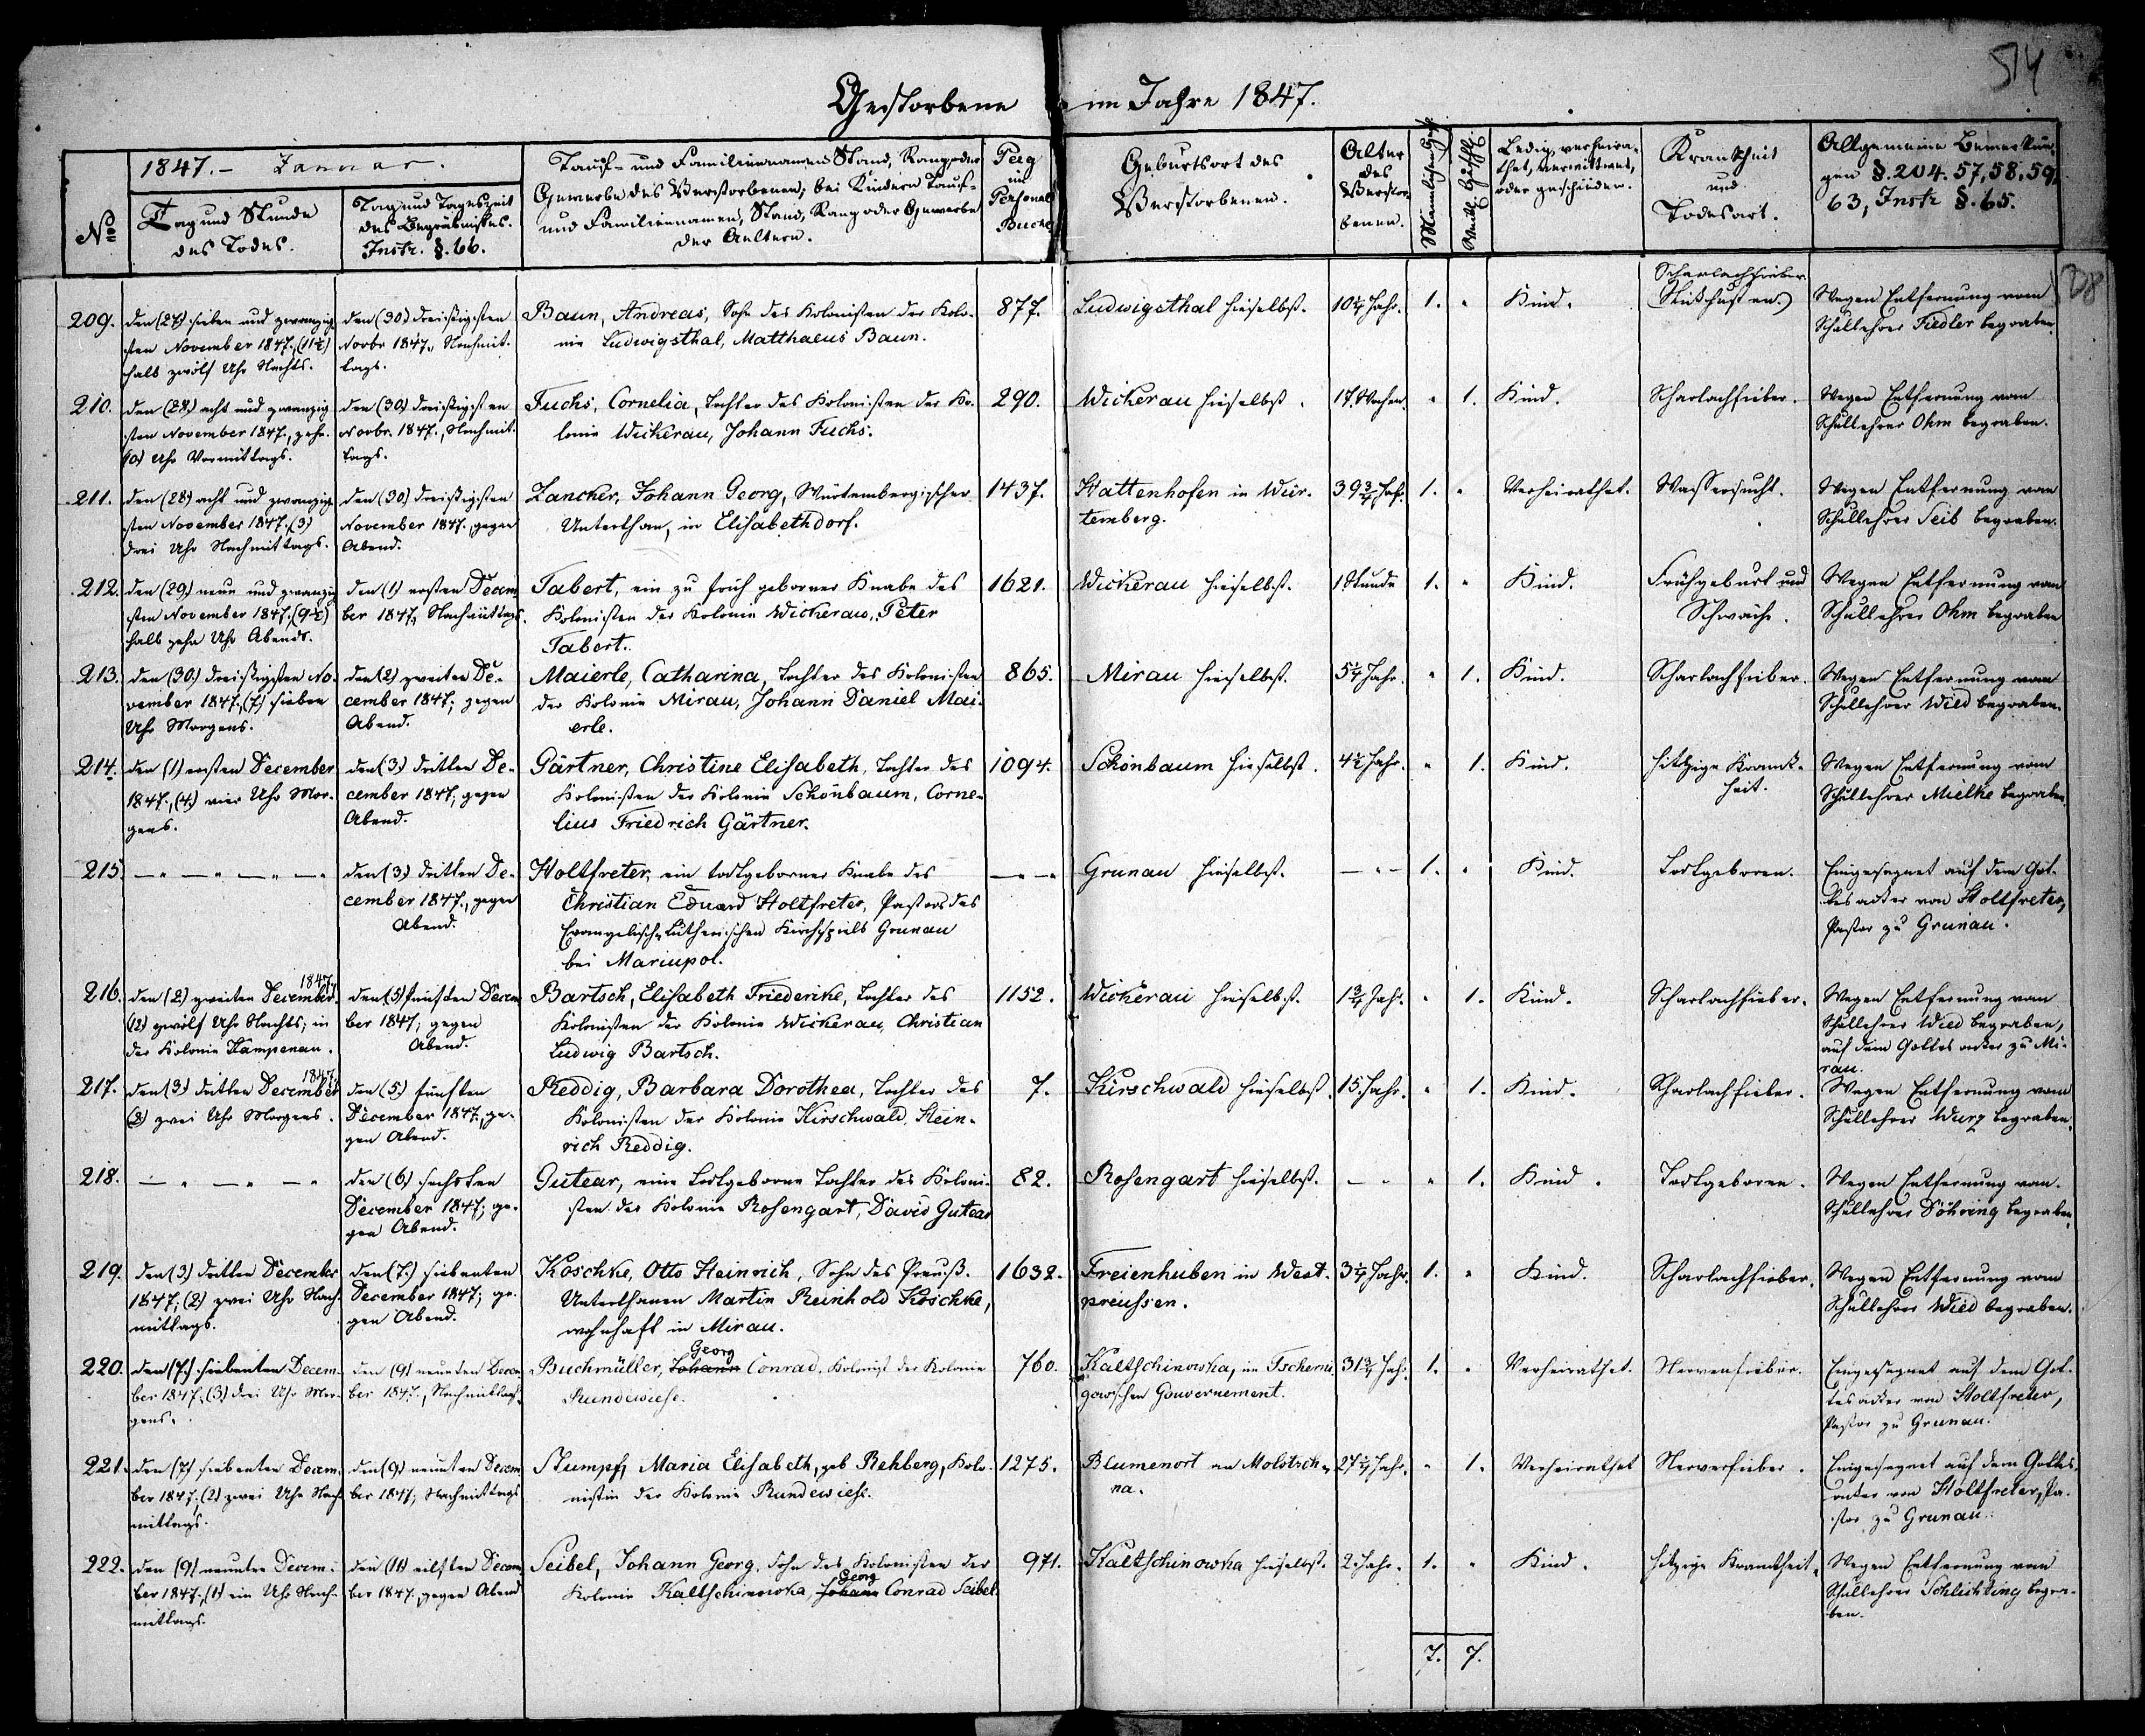 514
Gestorbene im Jahre 1847.
No
1847. - Januar.
Tag und Stunde
des Todes.
Tag und Tageszeit
des Begräbnisses.
Instr. §. 66.
Tauf- und Familiennamen, Stand, Rang oder
Gewerbe des Verstorbenen; bei Kindern Tauf-
und Familiennamen, Stand, Rang oder Gewerbe
der Aeltern.
Pag
im
Personal
Buche
Geburtsort des
Verstorbenen.
Alter
des
Verstor-
benen.
Männlichen Gesch.
Weibl. Geschl.
Ledig, verheira-
thet, verwittwet,
oder geschieden.
Krankheit
und
Todesart.
Allgemeine Bemerkun-
gen §. 204. 57, 58, 59,
63, Instr §. 65.
209.
den (27.) sieben und zwanzig
sten November 1847. (11½)
halb zwölf Uhr Nachts.
den (30.) dreißigsten
Novbr 1847., Nachmit-
tags.
Baun, Andreas, Sohn des Kolonisten der Kolo-
nie Ludwigsthal, Matthaeus Baun.
877.
Ludwigsthal hieselbst.
10¼ Jahr.
1.
"
Kind.
Scharlachfieber
(Stickhusten.)
Wegen Entfernung vom
Schullehrer Fiedler begraben.
210.
den (28.) acht und zwanzig
sten November 1847., zehn
(10.) Uhr Vormittags.
den (30.) dreißigsten
Novbr. 1847., Nachmit-
tags.
Fuchs, Cornelia, Tochter des Kolonisten der Ko-
lonie Wickerau, Johann Fuchs.
290.
Wickerau hieselbst.
17. Wochen.
"
1.
Kind.
Scharlachfieber.
Wegen Entfernung vom
Schullehrer Ohm begraben.
211.
den (28.) acht und zwanzig
sten November 1847., (3.)
drei Uhr Nachmittags.
den (30.) dreißigsten
November 1847. gegen
Abend.
Zancker, Johann Georg, Würtembergischer
Unterthan, in Elisabethdorf.
1437.
Hattenhofen in Wür-
temberg.
39¾ Jah.
1.
"
Verheirathet.
Wassersucht.
Wegen Entfernung vom
Schullehrer Seib begraben.
212.
den (29.) neun und zwanzig
sten November 1847. (9½)
halb zehn Uhr Abends.
den (1.) ersten Decem
ber 1847., Nachmittags.
Tabert, ein zu früh geborner Knabe des
Kolonisten der Kolonie Wickerau, Peter
Tabert.
1621.
Wickerau hieselbst.
1 Stunde
1.
"
Kind.
Frühgeburt und
Schwäche.
Wegen Entfernung vom
Schullehrer Ohm begraben
213.
den (30.) dreißigsten No-
vember 1847., (7.) sieben
Uhr Morgens.
den (2.) zweiten De-
cember 1847; gegen
Abend.
Maierle, Catharina, Tochter des Kolonisten
der Kolonie Mirau, Johann Daniel Mai-
erle.
865.
Mirau hieselbst.
5¼ Jahr.
"
1.
Kind.
Scharlachfieber.
Wegen Entfernung vom
Schullehrer Wied begraben.
214.
den (1.) ersten December
1847., (4.) vier Uhr Mor-
gens.
den (3.) dritten De-
cember 1847; gegen
Abend.
Gärtner, Christine Elisabeth, Tochter des
Kolonisten der Kolonie Schönbaum, Corne-
lius Friedrich Gärtner.
1094.
Schönbaum hieselbst.
4½ Jahr.
"
1.
Kind.
hitzige Krank-
heit.
Wegen Entfernung vom
Schullehrer Mielke begraben.
215.
— " — " — " — "
den (3.) dritten De-
cember 1847., gegen
Abend.
Holtfreter, ein todtgeborner Knabe des
Christian Eduard Holtfreter, Pastors des
Evangelisch-Lutherischen Kirchspiels Grunau
bei Mariupol.
— " — "
Grunau hieselbst.
— " —
1.
"
Kind.
Todtgeboren.
Eingesegnet auf dem Got-
tesacker von Holtfreter,
Pastor zu Grunau.
216.
1847.
den (2.) zweiten December.
(12) zwölf Uhr Nachts; in
der Kolonie Kampenau.
den (5) fünften Decem
ber 1847; gegen
Abend.
Bartsch, Elisabeth Friederike, Tochter des
Kolonisten der Kolonie Wickerau, Christian
Ludwig Bartsch.
1152.
Wickerau hieselbst.
1¾ Jahr.
"
1.
Kind.
Scharlachfieber.
Wegen Entfernung vom
Schullehrer Wied begraben,
auf dem Gottesacker zu Mi-
rau.
217.
1847
den (3.) dritten December
(2.) zwei Uhr Morgens.
den (5.) fünften
December 1847., ge-
gen Abend.
Reddig, Barbara Dorothea, Tochter des
Kolonisten der Kolonie Kirschwald, Hein-
rich Reddig.
7.
Kirschwald hieselbst.
15. Jahr.
"
1.
Kind.
Scharlachfieber.
Wegen Entfernung vom
Schullehrer Wurz begraben.
218.
— " — " — "
den (6.) sechsten
December 1847; ge-
gen Abend.
Gutear, eine todtgeborne Tochter des Koloni-
sten der Kolonie Rosengart, David Gutear
82.
Rosengart hieselbst.
— "
"
1.
Kind.
Todtgeboren.
Wegen Entfernung vom
Schullehrer Döhring begraben.
219.
den (3.) dritten December
1847; (2.) zwei Uhr Nach-
mittags.
den (7.) siebenten
December 1847; ge-
gen Abend.
Koschke, Otto Heinrich, Sohn des Preuß.
Unterthanen Martin Reinhold Koschke,
wohnhaft in Mirau.
1632.
Freienhuben in West-
preussen.
3¼ Jahr
1.
"
Kind.
Scharlachfieber.
Wegen Entfernung vom
Schullehrer Wied begraben.
220.
den (7.) siebenten Decem-
ber 1847., (3.) drei Uhr Mor-
gens.
den (9) neunten Decem
ber 1847., Nachmittags.
Georg
Buchmüller, Johann Conrad, Kolonist der Kolonie
Rundewiese.
760.
Kaltschinowka, im Tscherni-
gowschen Gouvernement.
31¾ Jah.
1.
"
Verheirathet.
Nervenfieber.
Eingesegnet auf dem Got-
tesacker von Holtfreter,
Pastor zu Grunau.
221.
den (7) siebenten Decem-
ber 1847., (2.) zwei Uhr Nach
mittags.
den (9) neunten Decem
ber 1847; Nachmittags
Stumpf, Maria Elisabeth, geb Rehberg, Kolo-
nistin der Kolonie Rundewiese.
1275.
Blumenort an Molotsch-
na.
27¼ Jahr.
"
1.
Verheirathet
Nervenfieber.
Eingesegnet auf dem Gottes-
acker von Holtfreter, Pa-
stor zu Grunau.
222.
den (9) neunten Decem-
ber 1847., (1) ein Uhr Nach-
mittags.
den (11) eilften Decem
ber 1847. gegen Abend
Seibel, Johann Georg, Sohn des Kolonisten der
Georg
Kolonie Kaltschinowka, Johann Conrad Seibel.
971.
Kaltschinowka hieselbst.
2. Jahr.
1.
"
Kind.
hitzige Krankheit.
Wegen Entfernung vom
Schullehrer Schlichting begra-
ben.
7. 7.